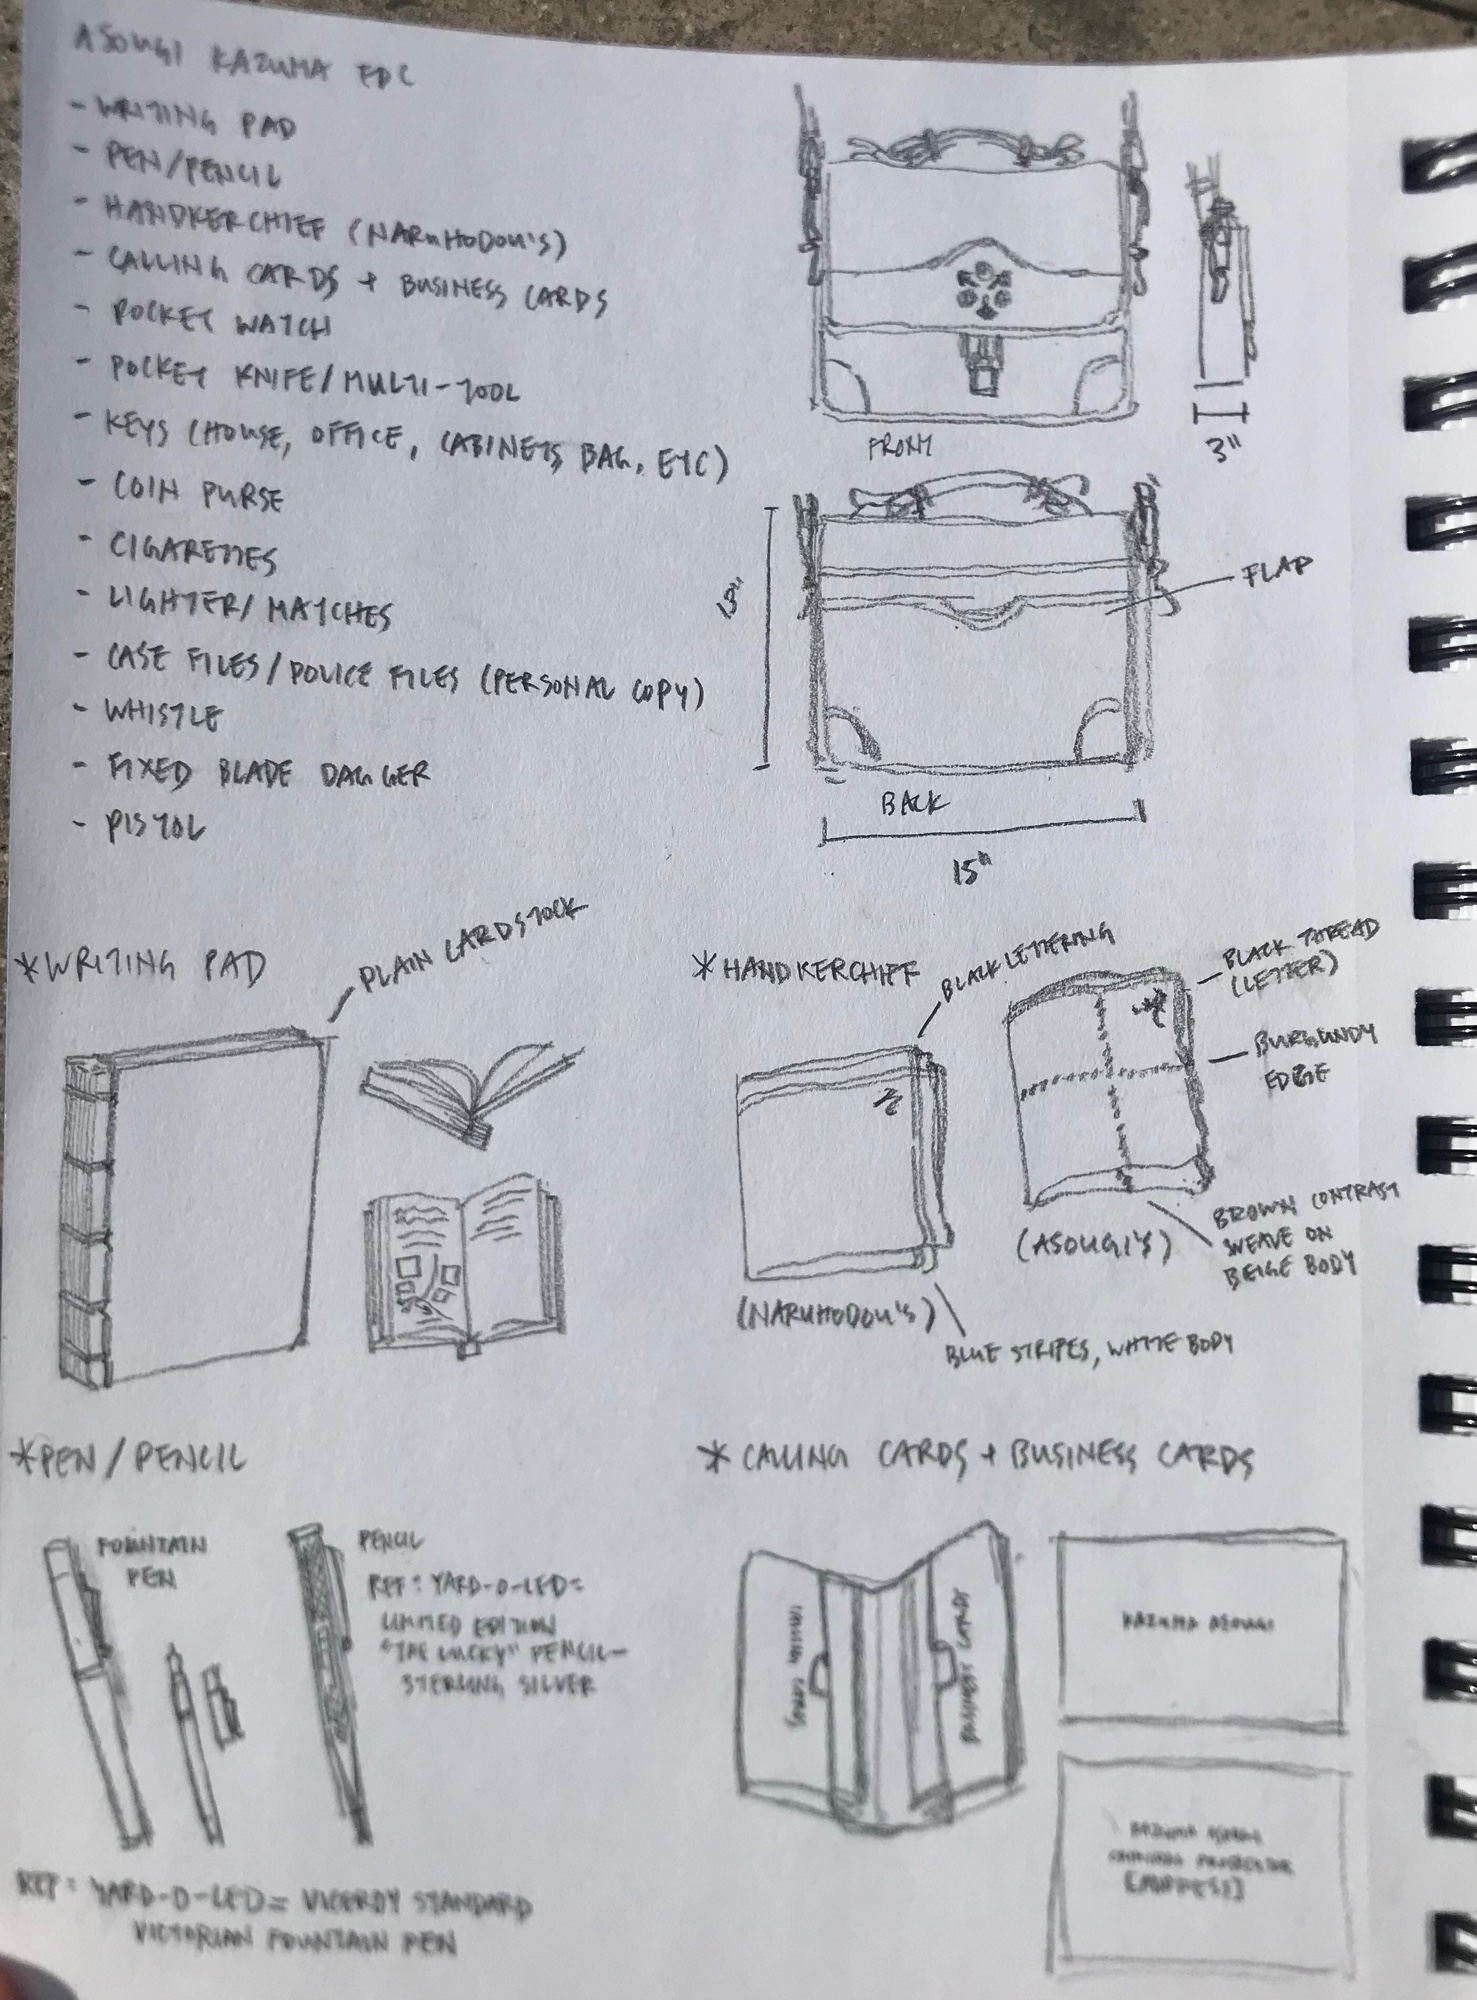 ASOUGI KAZUMA EDC
- WRITING PAD
- PEN/PENCIL
- HANDKERCHIEF (NARUHODOU'S)
- CALLING CARDS + BUSINESS CARDS
- POCKET WATCH
- POCKET KNIFE/MULTI-TOOL
- KEYS (HOUSE, OFFICE, CABINETS, BAG, ETC)
- COIN PURSE
- CIGARETTES
- LIGHTER/MATCHES
- CASE FILES/POLICE FILES (PERSONAL COPY)
- WHISTLE
- FIXED BLADE DAGGER
- PISTOL
FRONT
3"
FLAP
BACK
15"
*WRITING PAD
PLAIN CARDSTOCK
*HANDKERCHIEF
BLACK LETTERING
BLACK THREAD
(LETTER)
BURGUNDY
EDGE
(ASOUGI'S)
BROWN CONTRAST
WEAVE ON
BEIGE BODY
(NARUHODOU'S)
BLUE STRIPES, WHITE BODY
*PEN/PENCIL
FOUNTAIN
PEN
PENCIL
REF: YARD-O-LED=
LIMITED EDITION
"THE LUCKY" PENCIL-
STERLING SILVER
REF: YARD-O-LED= VICEROY STANDARD
VICTORIAN FOUNTAIN PEN
*CALLING CARDS + BUSINESS CARDS
CALLING CARDS
BUSINESS CARDS
KAZUMA ASOUGI
KAZUMA ASOUGI
CRIMINAL PROSECUTOR
[ADDRESS]